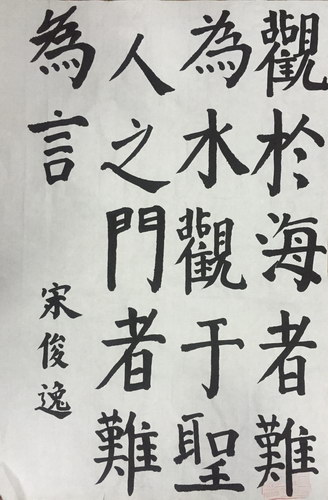 觀於海者難
為水觀于聖
人之門者難
為言
宋俊逸